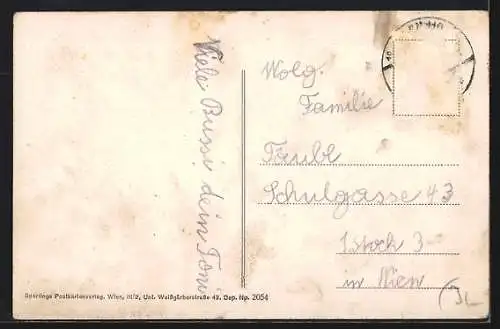 Viele Bussi dein Toni
Wolg.
Familie
Taubl
Schulgasse 43
1 stock 3
in Wien
Sperlings Postkartenverlag, Wien, III/2, Unt. Weißgärberstraße 43. Dep. Np. 2054